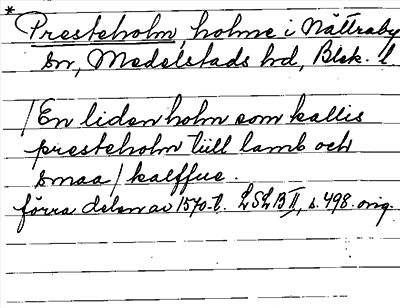 *
Presteholm, holme i Nättraby
sn, Medelstads hd, Blek. l.
/En liden holm som kallis
presteholm tiill lamb och
smaa/kalffue.
förra delen av 1570-t. LSLB II, s. 498. orig.